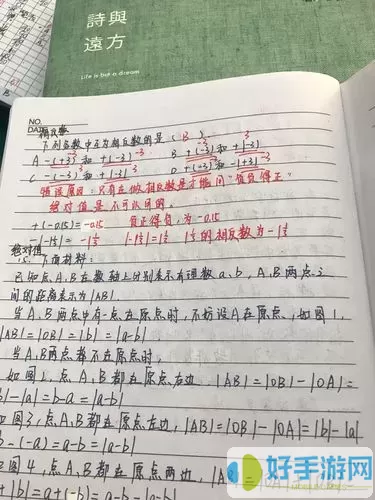 詩與
遠方
Life is but a dream
NO.
DATE
相反数
下列各数中互为相反数的是( B )
A -(+3) 和 +(-3) B +(-3) 和 +|-3|
C -(-3) 和 +|-3| D +(-3) 和 -|+3|
错误原因:只有在做相反数是才能用"负负得正"
绝对值是不可以用的。
+(-0.15)=-0.15 负正得负,为-0.15
-|-1½|=-1½ |-1½|=1½ 1½的相反数为-1½
绝对值
15. 下面材料:
已知点A、B在数轴上分别表示有理数a、b,A、B两点之
间的距离表示为|AB|
当A、B两点中有一点在原点时,不妨设A在原点,如图1,
|AB|=|OB|=|b|=|a-b|
当A、B两点都不在原点时,
如图2,点A、B都在原点右边,|AB|=|OB|-|OA|=
|b|-|a|=b-a=|a-b|
如图3,点A、B都在原点左边,|AB|=|OB|-|OA|=|b|-|a|
b-(-a)=a-b=|a-b|
如图4,点A、B都在原点两边,|AB|
+|b|=a+(-b)=a-b=|a-b|
好手游网